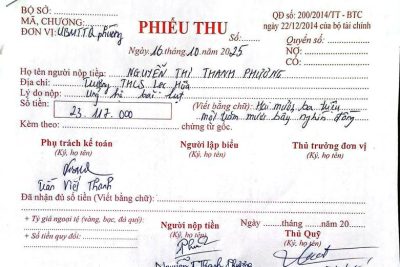 BỘ SỐ:
MÃ, CHƯƠNG:
ĐƠN VỊ: UBMTTQ phường
PHIẾU THU
Số:
Ngày 16 tháng 10 năm 2025
QĐ số: 200/2014/TT - BTC
ngày 22/12/2014 của bộ tài chính
Quyển số:
NỢ:
CÓ:
Họ tên người nộp tiền: NGUYỄN THỊ THANH PHƯƠNG
Địa chỉ: Trường THCS Lộc Hòa
Lý do nộp: ủng hộ bão lụt
Số tiền: 23.117.000 (Viết bằng chữ): Hai mươi ba triệu
một trăm mười bảy nghìn đồng
Kèm theo: chứng từ gốc.
Phụ trách kế toán
(Ký, họ tên)
Người lập biểu
(Ký, họ tên)
Thủ trưởng đơn vị
(Ký, họ tên)
Trần Việt Thanh
Đã nhận đủ số tiền (Viết bằng chữ):
+ Tỷ giá ngoại tệ (vàng, bạc, đá quý):
+ Số tiền quy đổi:
Người nộp tiền
(Ký, họ tên)
Ngày tháng năm 20
Thủ Quỹ
(Ký, họ tên)
Nguyễn T Thanh Phương